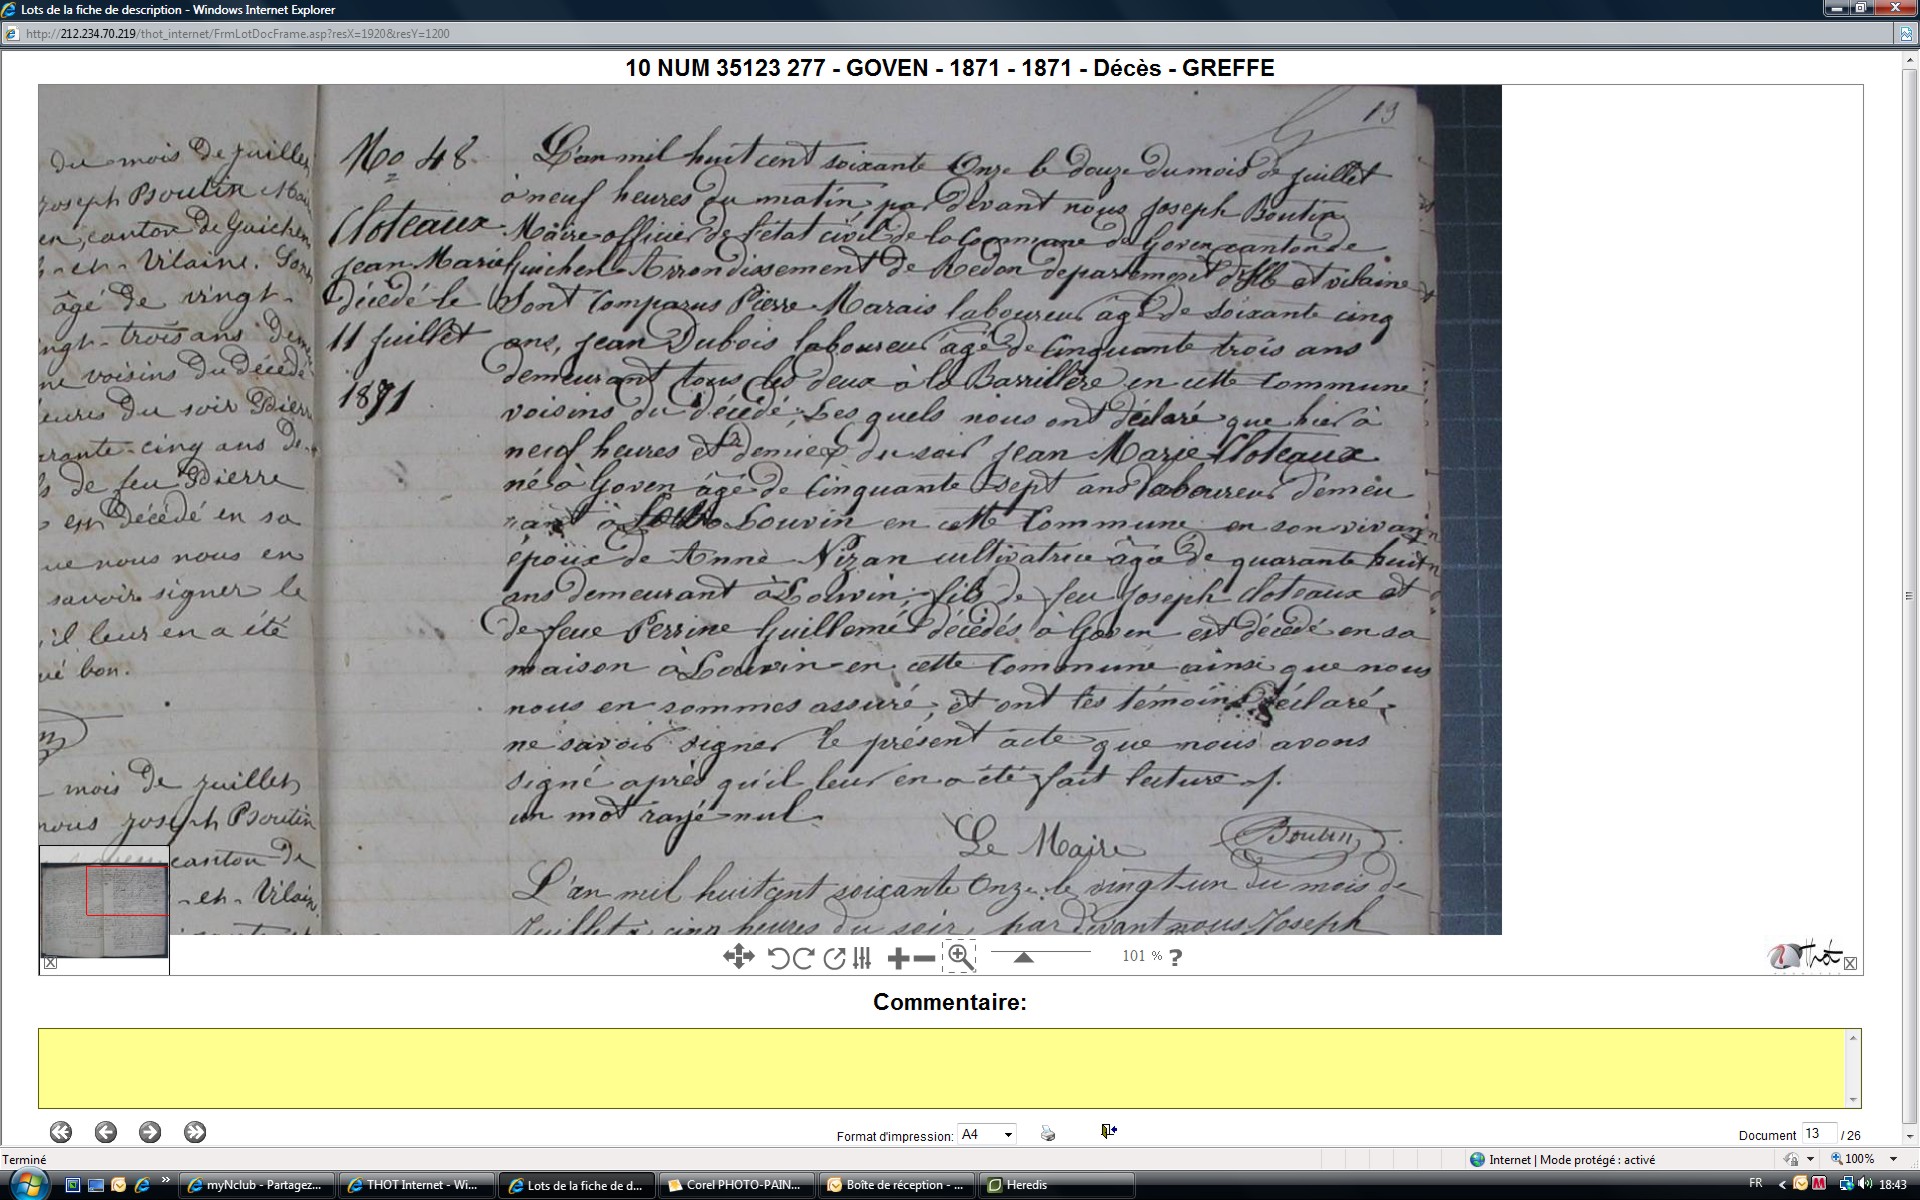 Lots de la fiche de description - Windows Internet Explorer
http://212.234.70.219/thot_internet/FrmLotDocFrame.asp?resX=1920&resY=1200
10 NUM 35123 277 - GOVEN - 1871 - 1871 - Décès - GREFFE
du mois de juillet
joseph Boutin
canton de Guichen
-et- Vilaine.
âgé de vingt-
trois ans
voisins du décédé
du soir Pierre
cinq ans
de feu Pierre
est décédé en sa
nous nous en
savoir signer le
il leur en a été
bon.
mois de juillet
nous joseph Boutin
canton de
-et- Vilaine
13
No 48
Cloteaux
jean Marie
décédé le
11 juillet
1871
L'an mil huit cent soixante Onze le douze du mois de juillet
à neuf heures du matin par devant nous joseph Boutin
Maire officier de l'état civil de la Commune de Goven canton de
Guichen Arrondissement de Redon departement d'Ille et vilaine
Sont Comparus Pierre Marais laboureur âgé de soixante cinq
ans, jean Dubois laboureur âgé de Cinquante trois ans
demeurant tous les deux à la Barrillère en cette Commune
voisins du décédé, Les quels nous ont déclaré que hier à
neuf heures et demie du soir jean Marie Cloteaux
né à Goven âgé de Cinquante sept ans laboureur demeu
rant à Louvin en cette Commune en son vivant
époux de Anne Nizan cultivatrice âgée de quarante huit
ans demeurant à Louvin, fils de feu joseph Cloteaux et
de feue Perrine Guillemé décédés à Goven est décédé en sa
maison à Louvin en cette Commune ainsi que nous
nous en sommes assuré, et ont les témoins déclaré
ne savoir signer le présent acte que nous avons
signé après qu'il leur en a été fait lecture /.
un mot rayé nul.
Le Maire
Boutin
L'an mil huit cent soixante Onze le vingt-un du mois de
Juillet à cinq heures du soir, par devant nous Joseph
101 % ?
Thot
Commentaire:
Format d'impression: A4
Document 13 / 26
Terminé
Internet | Mode protégé : activé
100%
myNclub - Partagez...
THOT Internet - Wi...
Lots de la fiche de d...
Corel PHOTO-PAIN...
Boîte de réception - ...
Heredis
FR
18:43